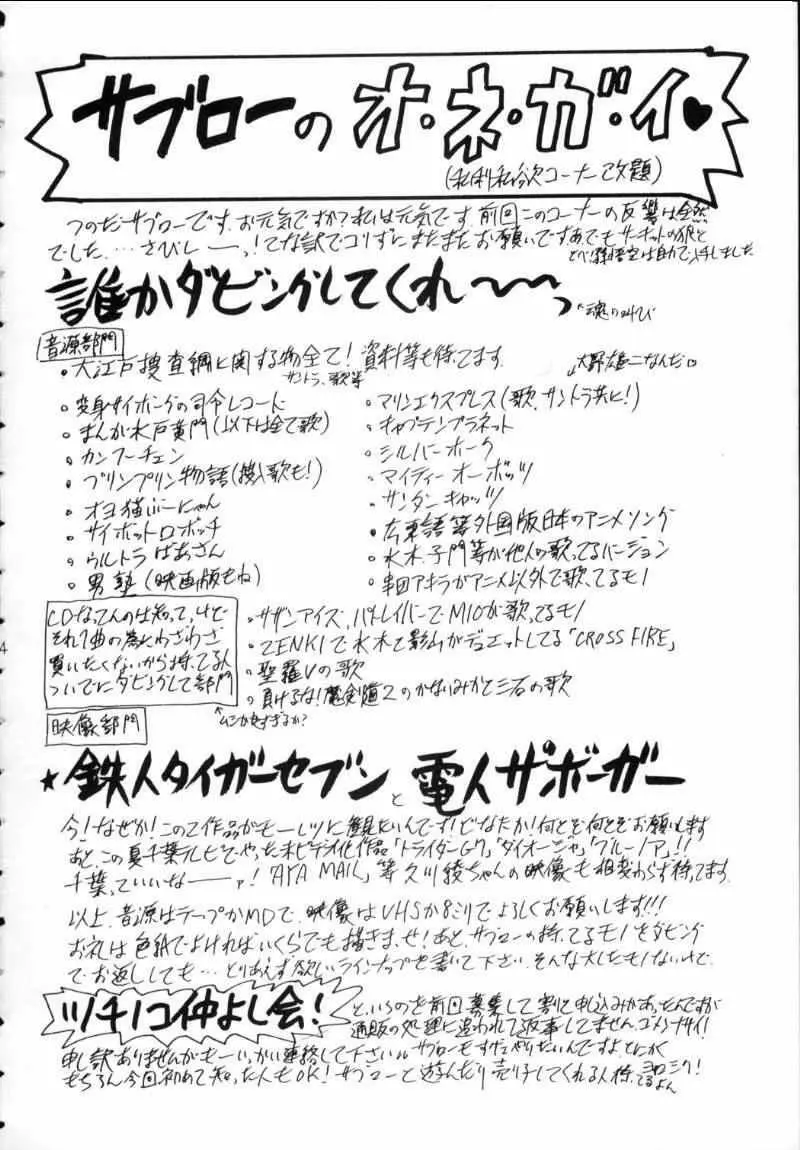 サブローの オ・ネ・ガ・イ♥
(私利私欲コーナー改題)
つのだサブローです。お元気ですか?私は元気です。前回このコーナーの反響は全然
でした….さびしーーっ!てな訳でコリずにまたまたお願いです。あ、でもサーキットの狼と
とべ!孫悟空は自力で入手しました
誰かダビングしてくれ〜〜〜っ
↖魂の叫び
音源部門
・大江戸捜査網に関する物全て!資料等も待ってます。
サントラ、歌等
大野雄二なんだ
・変身サイボーグの司令レコード
・まんが水戸黄門(以下は全て歌)
・カンフーチェン
・プリンプリン物語(挿入歌も!)
・オヨ猫ぶーにゃん
・サイボットロボッチ
・ウルトラばあさん
・男塾(映画版もね)
・マリンエクスプレス(歌、サントラ共に!)
・キャプテンプラネット
・シルバーホーク
・マイティーオーボッツ
・サンダーキャッツ
・広東語等外国版日本のアニメソング
・水木、子門等が他人の歌ってるバージョン
・串田アキラがアニメ以外で歌ってるモノ
CDなってんのは知ってっけど
それ1曲の為にわざわざ
買いたくないから持ってる人
ついでにダビングして部門
↖ムシが良すぎるか?
・サザンアイズ、パトレイバーでMIOが歌ってるモノ
・ZENKIで水木と影山がデュエットしてる「CROSS FIRE」
・聖羅Vの歌
・負けるな!魔剣道2のかないみかと三石の歌
映像部門
★鉄人タイガーセブンと電人ザボーガー
今!なぜか!この2作品がモーレツに観たいんです!どなたか!何とぞ何とぞお願いします
あと、この夏千葉テレビでやった未ビデオ化作品「トライダーG7」「ダイオージャ」「グルーノア」!!
千葉っていいなーーァ!「AYA MAIL」等久川綾ちゃんの映像も相変わらず待ってます
以上、音源はテープかMDで、映像はVHSか8ミリでよろしくお願いします!!!
お礼は色紙でよければいくらでも描きまっせ!あと、サブローの持ってるモノをダビング
でお返ししても…とりあえず欲しいラインナップを書いて下さい。そんな大したモノないけど
ツチノコ仲よし会!
というのを前回募集して割と申込みがあったんですが
通販の処理に追われて返事してません。ゴメンナサイ!
申し訳ありませんがもーいっかい連絡して下さい。サブローもすげェやりたいんですよとにかく
もちろん今回初めて知った人もOK!サブローと遊んだり売り子してくれる人待ってるよん ヨロシク!
4